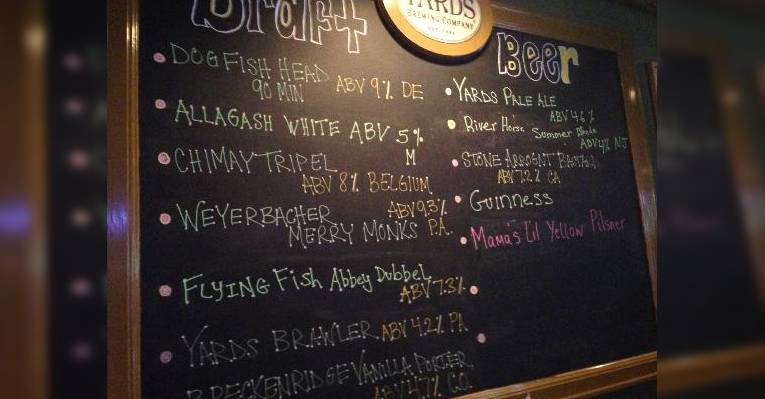 Draft
YARDS
BREWING COMPANY
Beer
DOGFISH HEAD
90 MIN ABV 9% DE
ALLAGASH WHITE ABV 5%
M
CHIMAY TRIPEL
ABV 8% BELGIUM
WEYERBACHER ABV 9.3%
MERRY MONKS PA.
FLYING Fish Abbey Dubbel
ABV 7.3%
YARDS BRAWLER ABV 4.2% PA
BRECKENRIDGE VANILLA PORTER
ABV 4.7% CO.
YARDS PALE ALE
ABV 4.6%
River Horse Summer Blonde
ABV 4% NJ
STONE ARROGNT
ABV 7.2% CA
Guinness
Mama's Lil Yellow Pilsner